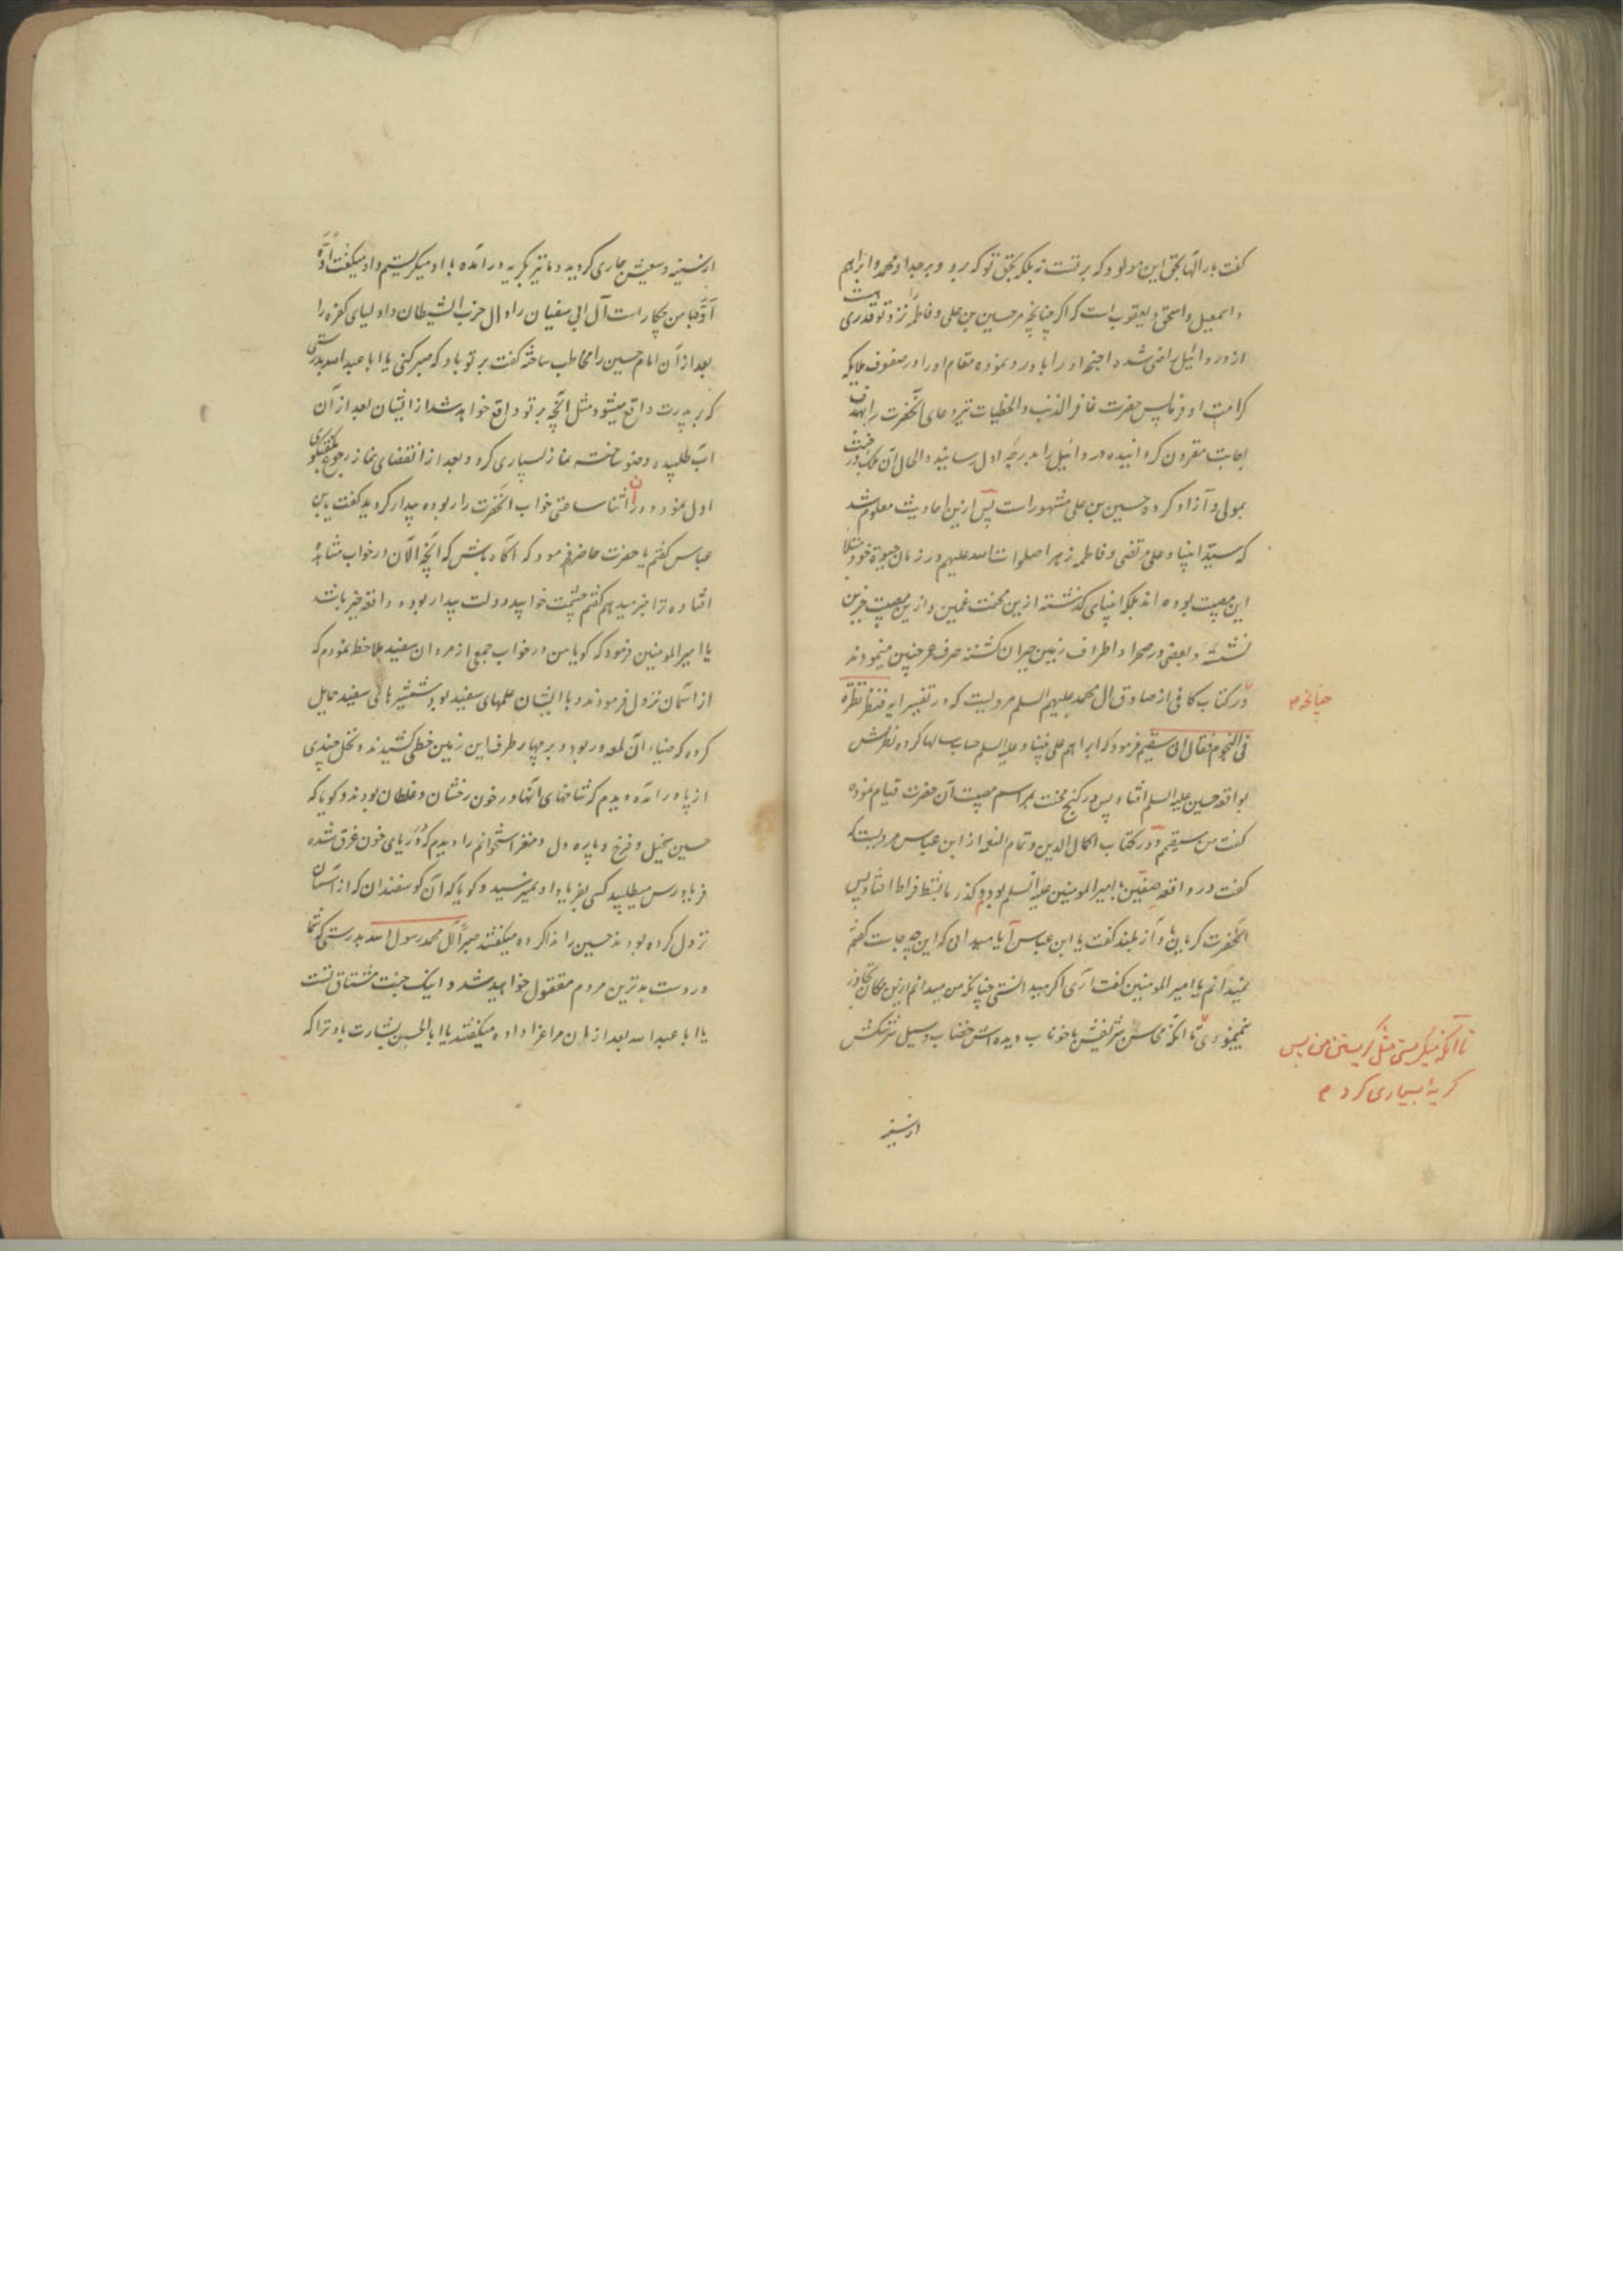 کفت بار الها بحق این مولود که برتست نه بلکه بحق تو که برو و بر جد او محمد و ابراهیم
و اسمعیل و اسحق و یعقوب است که اکر چنانچه مر حسین بن علی و فاطمه را نزد تو قدری هست
از دردائیل راضی شده اجنحه او را با و رد نموده مقام او را در صفوف ملایکه
کرامت او فرما پس حضرت غافر الذنب و الخطیات تیر دعای آنحضرت را بهدف
اجابت مقرون کردانیده دردائیل را بدرجه اول رسانید و الحال آن ملک در جنت
بمولی و آزاد کرده حسین بن علی مشهور است پس ازین احادیث معلوم شد
که سید انبیا و علی مرتضی و فاطمه زهرا صلوات الله علیهم در زمان حیوة خود مبتلا
این مصیبت بوده اند بلکه انبیای کذشته ازین محنت غمین و ازین مصیبت حزین
نشسته و بعضی در صحرا و اطراف زمین حیران کشته صرف عمر چنین مینمودند
چنانچه م
در کتاب کافی از صادق ال محمد علیهم السلم مرویست که در تفسیر ایه فنظر نظرة
فی النجوم فقال انی سقیم فرمود که ابراهیم علی نبینا و علیه السلم حساب سالها کرده نظرش
بواقعه حسین علیه السلم افتاد پس در کنج محنت بمراسم مصیبت آن حضرت قیام نموده
کفت من سقیمم و در کتاب اکمال الدین و تمام النعمه از ابن عباس مرویست که
کفت در واقعه صفین با امیر المومنین علیه السلم بودم و کذر ما بشط فرات افتاد پس
آنحضرت کریان با واز بلند کفت یا ابن عباس آیا میدانی که این چه جاست کفتم
نمیدانم یا امیر المومنین کفت آری اکر میدانستی چنانکه من میدانم ازین مکان تجاوز
نمینمودی تا انکه محاسن شریفش با خوناب دیده اش خضاب و سیل سرشکش
تا آنکه میکریستی مثل کریستن من پس
کریه بسیاری کرد م
از سینه
از سینه وسیعش جاری کردید و ما نیز بکریه در آمده با او میکریستیم و او میکفت آوه
آوه با من چکار است آل ابی سفیان را و ال حزب الشیطان و اولیای کفره را
بعد از آن امام حسین را مخاطب ساخته کفت بر تو باد که صبر کنی یا ابا عبد الله بدرستی
که بر پدرت واقع میشود مثل آنچه بر تو واقع خواهد شد از ایشان بعد از آن
آب طلبیده وضو ساخته نماز بسیاری کرد و بعد از انقضای نماز رجوع بگفتگوی
اول نمود و در آن اثنا ساعتی خواب آنحضرت را ربوده بیدار کردید کفت یا بن
عباس کفتم یا حضرت حاضرم فرمود که اکاه باش که آنچه الآن در خواب مشاهده
افتاده ترا خبر میدهم کفتم چشمت خوابید و دولت بیدار بوده واقعه خیر باشد
یا امیر المومنین فرمود که کویا من در خواب جمعی از مردان سفید ملاحظه نمودم که
از اسمان نزول فرمودند و با ایشان علمهای سفید بود و شمشیرهای سفید حمایل
کرده که ضیاء آن لمعه ور بود و بر چهار طرف این زمین خطی کشیدند و نخل چندی
از پا در آمده دیدم که شاخهای آنها در خون رخشان و غلطان بودند و کویا که
حسین نخیل و فرخ و پاره دل و مغز استخوانم را دیدم که در دریای خون غرق شده
فریادرس میطلبید کسی بفریاد او نمیرسید و کویا که آن کوسفندان که از آسمان
نزول کرده بودند حسین را ندا کرده میکفتند صبراً آل محمد رسول الله بدرستی که شما
در دست بدترین مردم مقتول خواهید شد و اینک جنت مشتاق تست
یا ابا عبد الله بعد از ان مرا عزا داده میکفتند یا ابا الحسن بشارت باد ترا که